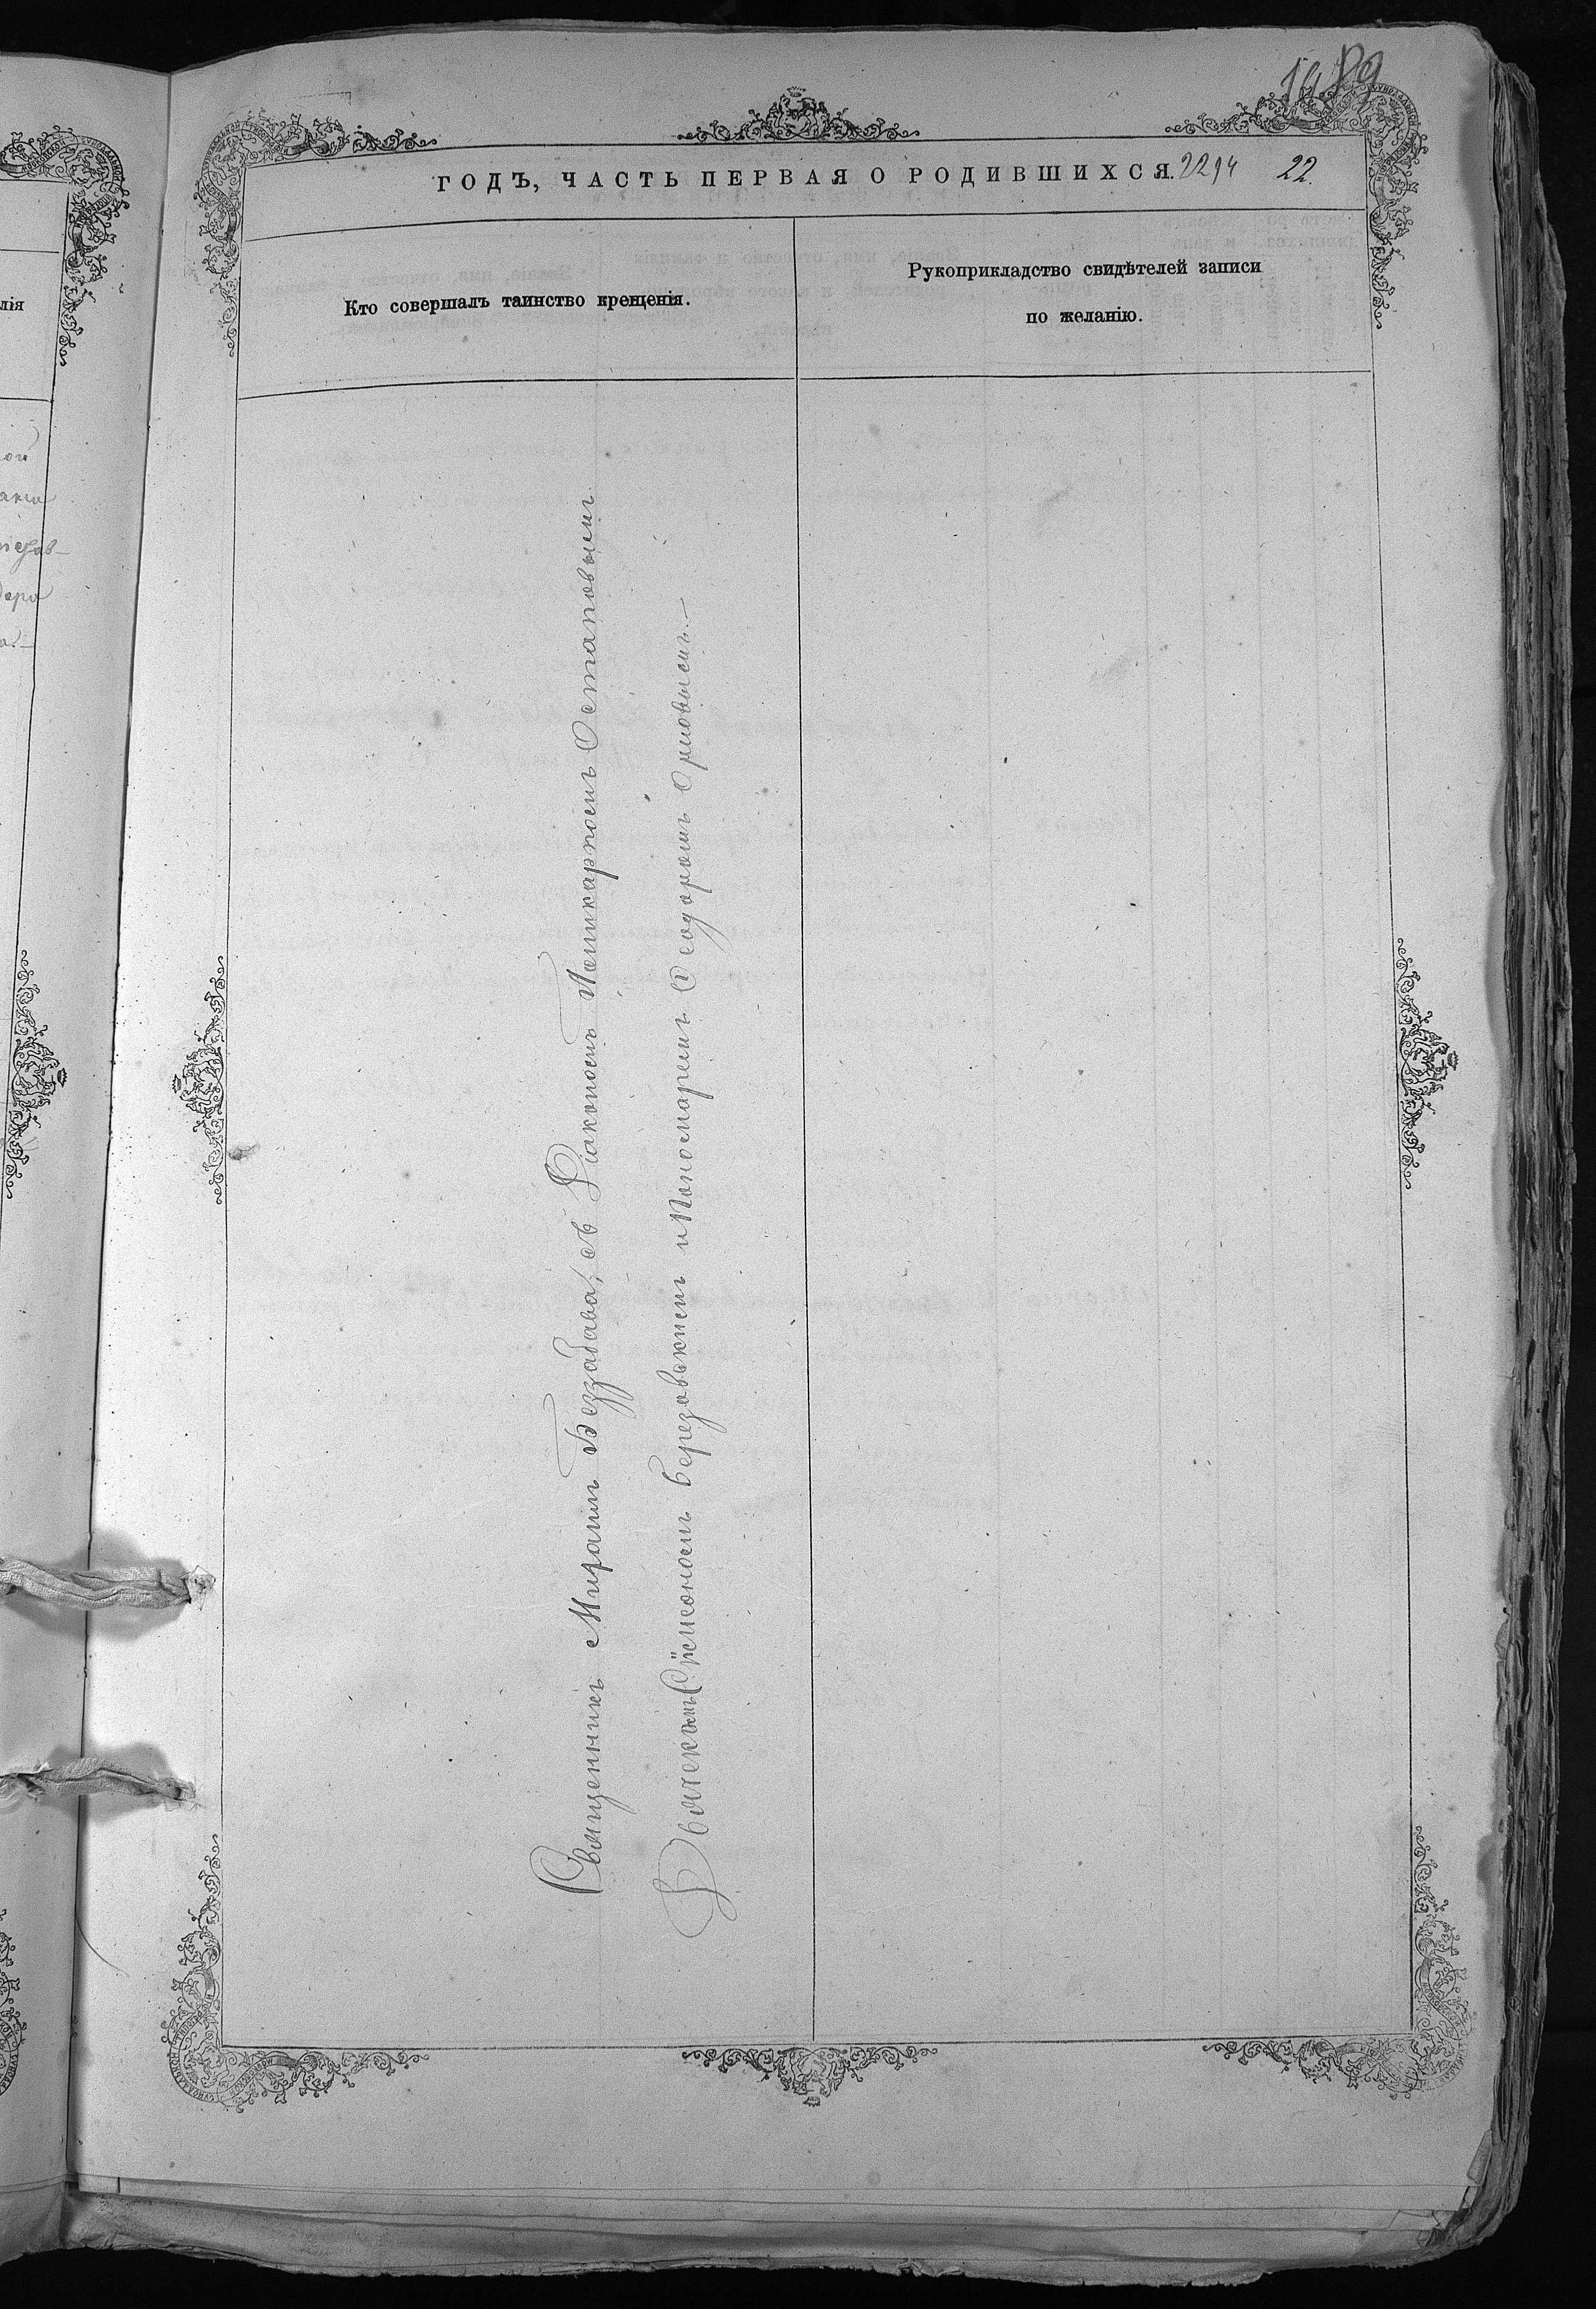 ГОДЪ, ЧАСТЬ ПЕРВАЯ О РОДИВШИХСЯ. 2294 22.
Кто совершалъ таинство крещенія.
Рукоприкладство свидѣтелей записи
по желанію.
Священникъ Миронъ Беззабава, съ Діакономъ Поликарпомъ Остаповымъ
Дьячекомъ Сѵмеономъ Березовскимъ и Пономаремъ Ѳеодоромъ Орловымъ.—
лія